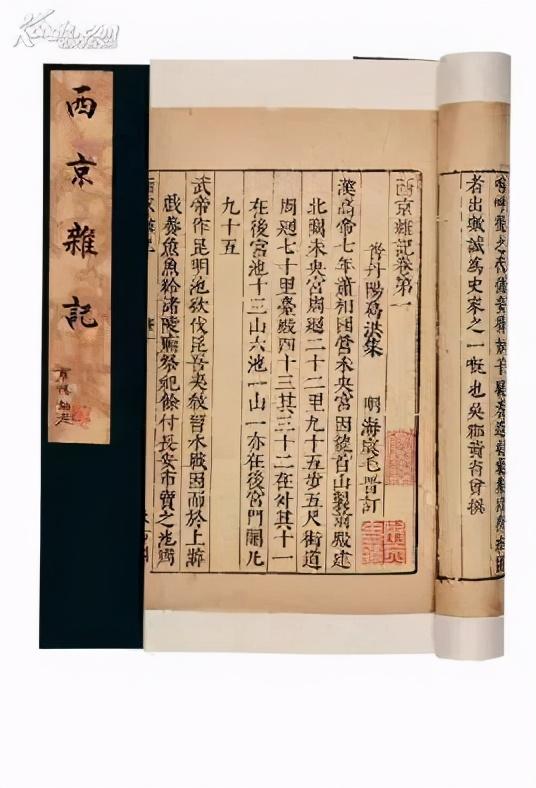 西京雜記
西京雜記卷第一
晉丹陽葛洪集
明海虞毛晉訂
漢高帝七年蕭相國營未央宮因龍首山製前殿建
北闕未央宮周迴二十二里九十五步五尺街道
周迴七十里臺殿四十三其三十二在外其十一
在後宮池十三山六池一山一亦在後宮門闥凡
九十五
武帝作昆明池欲伐昆吾夷教習水戰因而於上游
戲養魚魚給諸陵廟祭祀餘付長安市賣之池周
者出
誠為史家之一
也吳郡黃省曾撰